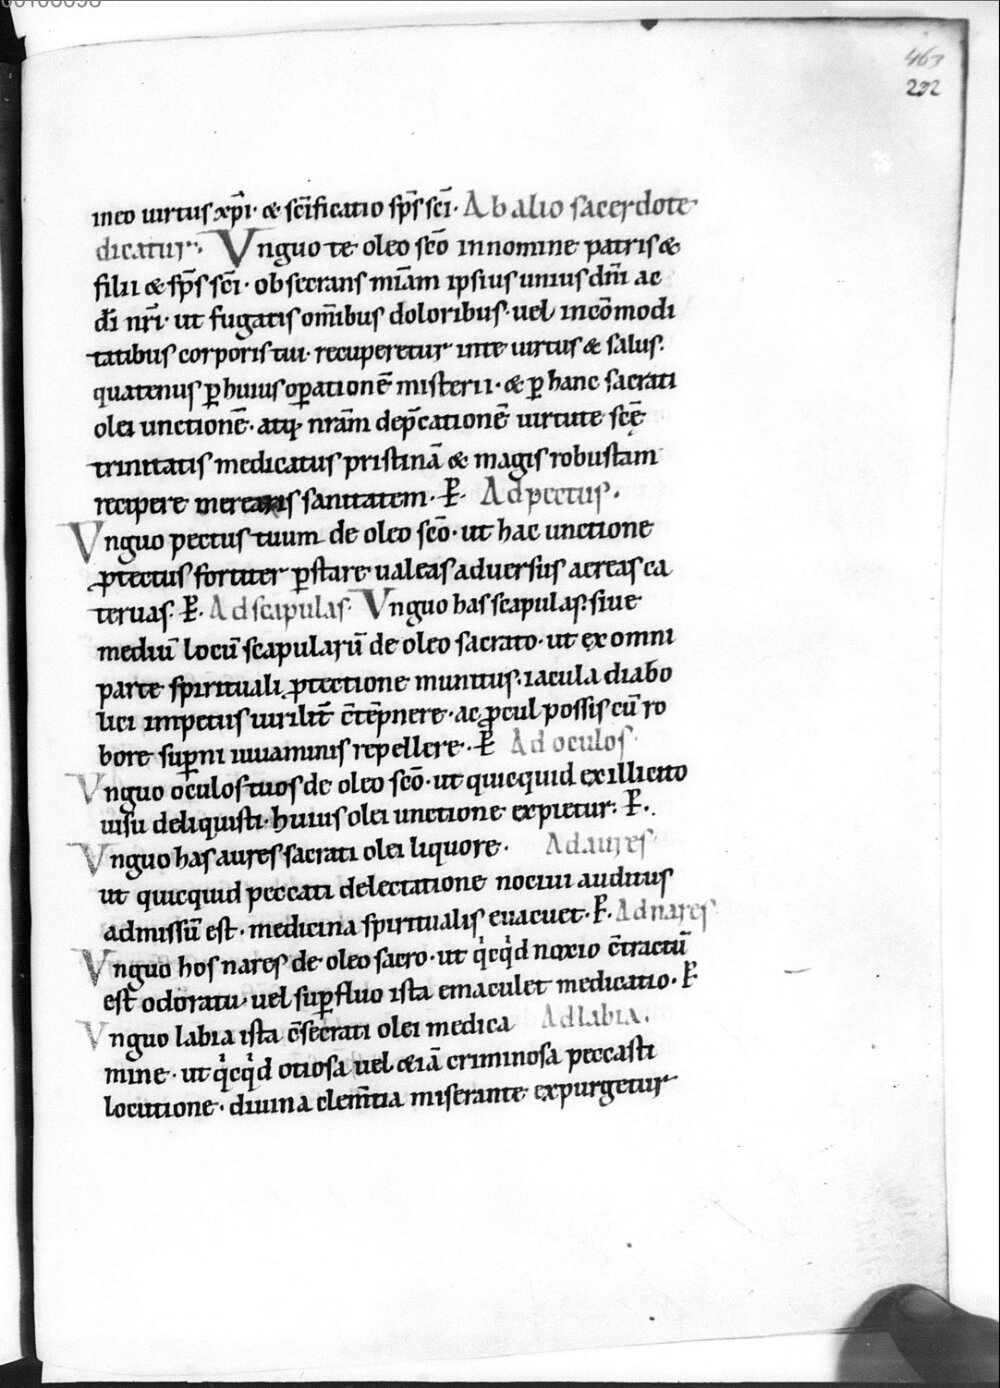 463
232
in eo uirtus xp̄i· & sc̄ificatio sp̄s sc̄i· Ab alio sacerdote
dicatur·, Vnguo te oleo sc̄o in nomine patris &
filii & sp̄s sc̄i· obsecrans mīam ipsius unius dn̄i ac
dī nr̄i· ut fugatis om̄ibus doloribus· uel incōmodi
tatibus corporis tui· recuperetur in te uirtus & salus.
quatenus ꝑ huius oꝑationē misterii· & ꝑ hanc sacrati
olei unctionē· atq; nrām dep̄cationē uirtute scę̄
trinitatis medicatus pristinā & magis robustam
recipere merearis sanitatem· P̶· Ad pectus·
Vnguo pectus tuum de oleo sc̄o· ut hac unctione
ꝓtectus fortiter ꝑstare ualeas aduersus aereas ca
teruas· P̶· Ad scapulas· Vnguo has scapulas· siue
mediū locū scapularū de oleo sacrato· ut ex omni
parte spirituali ꝓtectione munitus· iacula diabo
lici impetus uirilit̄ c̄tēpnere· ac ꝓcul possis cū ro
bore suꝑni iuuaminis repellere· P̶ Ad oculos·
Vnguo oculos tuos de oleo sc̄o· ut quicquid ex illicito
uisu deliquisti· huius olei unctione expietur· P̶·
Vnguo has aures sacrati olei liquore· Ad aures·
ut quicquid peccati delectatione nociui auditus
admissū est· medicina spiritualis euacuet· P̶· Ad nares·
Vnguo hos nares de oleo sacro· ut qͥcqͥd noxio c̄tractū
est odoratu· uel suꝑfluo ista emaculet medicatio· P̶
Vnguo labia ista c̄secrati olei medica Ad labia·
mine· ut qͥcqͥd otiosa uel &iā criminosa peccasti
locutione· diuina clem̄tia miserante expurgetur